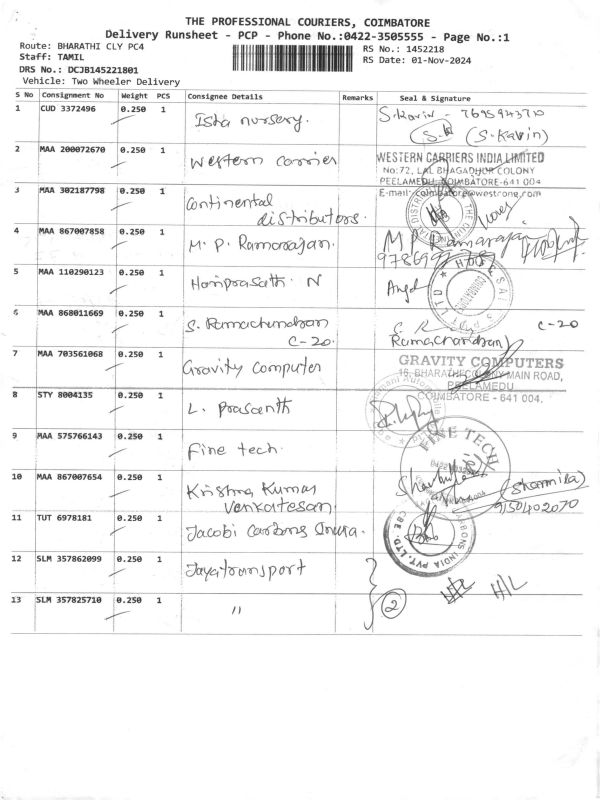 THE PROFESSIONAL COURIERS, COIMBATORE
Delivery Runsheet - PCP - Phone No.:0422-3505555 - Page No.:1
Route: BHARATHI CLY PC4
RS No.: 1452218
Staff: TAMIL
RS Date: 01-Nov-2024
DRS No.: DCJB145221801
Vehicle: Two Wheeler Delivery
S No Consignment No Weight PCS Consignee Details Remarks Seal & Signature
1 CUD 3372496 0.250 1 Isha nursery. S.Kavin - 7695943710
(S.Kavin)
2 MAA 200072670 0.250 1 Western carrier WESTERN CARRIERS INDIA LIMITED
No:72, LAL BHAGADHUR COLONY
PEELAMEDU, COIMBATORE-641 004
3 MAA 302187798 0.250 1 Continental distributors. E-mail: coimbatore@westrong.com
4 MAA 867007858 0.250 1 M. P. Ramarajan. M P Ramarajan
5 MAA 110290123 0.250 1 Hariprasath. N
6 MAA 868011669 0.250 1 S. Ramachandran C-20. C-20
Ramachandran
7 MAA 703561068 0.250 1 Gravity Computer GRAVITY COMPUTERS
16, BHARATHI COLONY MAIN ROAD,
PEELAMEDU
COIMBATORE - 641 004.
8 STY 8004135 0.250 1 L. Prasanth
9 MAA 575766143 0.250 1 Fine tech. FINE TECH
10 MAA 867007654 0.250 1 Krishna Kumar Venkatesan. (Sharmila)
9150402070
11 TUT 6978181 0.250 1 Jacobi Carbons India.
12 SLM 357862099 0.250 1 Jayatransport
13 SLM 357825710 0.250 1 " 2 H/L